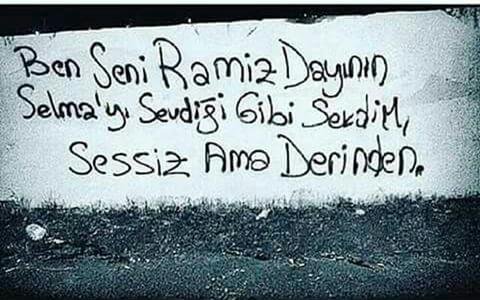 Ben Seni Ramiz Dayının
Selma'yı Sevdiği Gibi Sevdim,
Sessiz Ama Derinden.